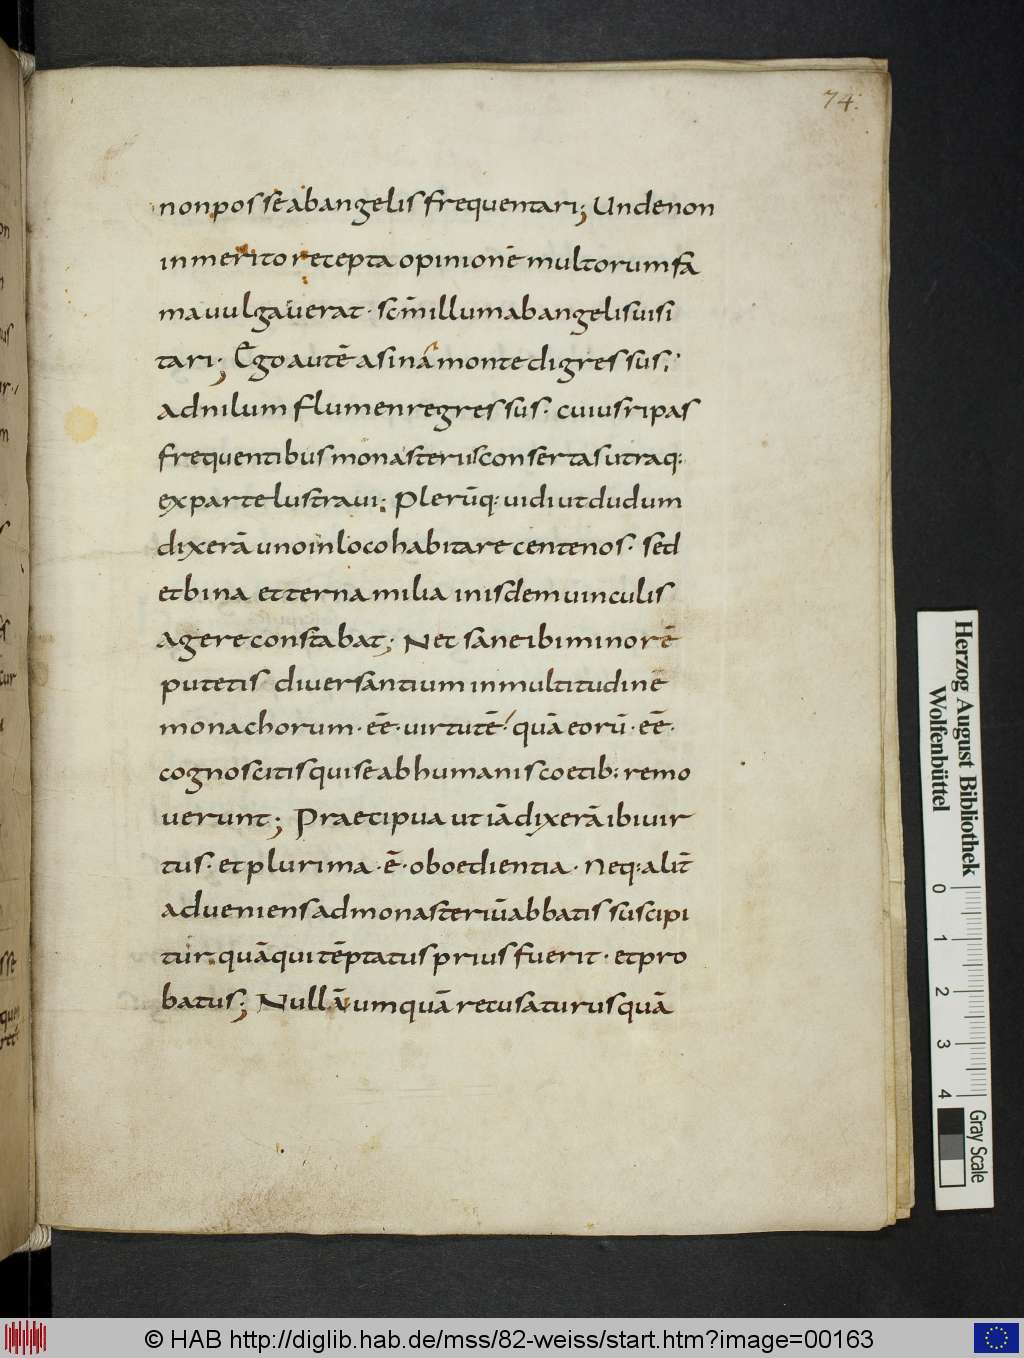 74:
non posse ab angelis frequentari; Unde non
inmerito recepta opinionē multorum fa
ma vulgaverat · scm̄ illum ab angelis visi
tari; Ego autē a sina monte digressus;
ad nilum flumen regressus · cuius ripas
frequentibus monasteriis consertas utraq:
ex parte lustravi; Plerūq: vidi ut dudum
dixerā uno in loco habitare centenos · sed
et bina et terna milia in isdem vinculis
agere constabat; Nec sane ibi minorē
putetis diversantium in multitudine
monachorum · eē · virtutē · quā eorū · eē ·
cognoscitis qui se ab humanis coetib: remo
verunt; Praecipua ut iā dixerā ibi vir
tus · et plurima · ē · oboedientia · Neq: alit̄
adveniens ad monasteriū abbatis suscipi
tur quā qui tēptatus prius fuerit · et pro
batus; Nullā umquā recusaturus quā
Herzog August Bibliothek
Wolfenbüttel
0
1
2
3
4
Gray Scale
© HAB http://diglib.hab.de/mss/82-weiss/start.htm?image=00163